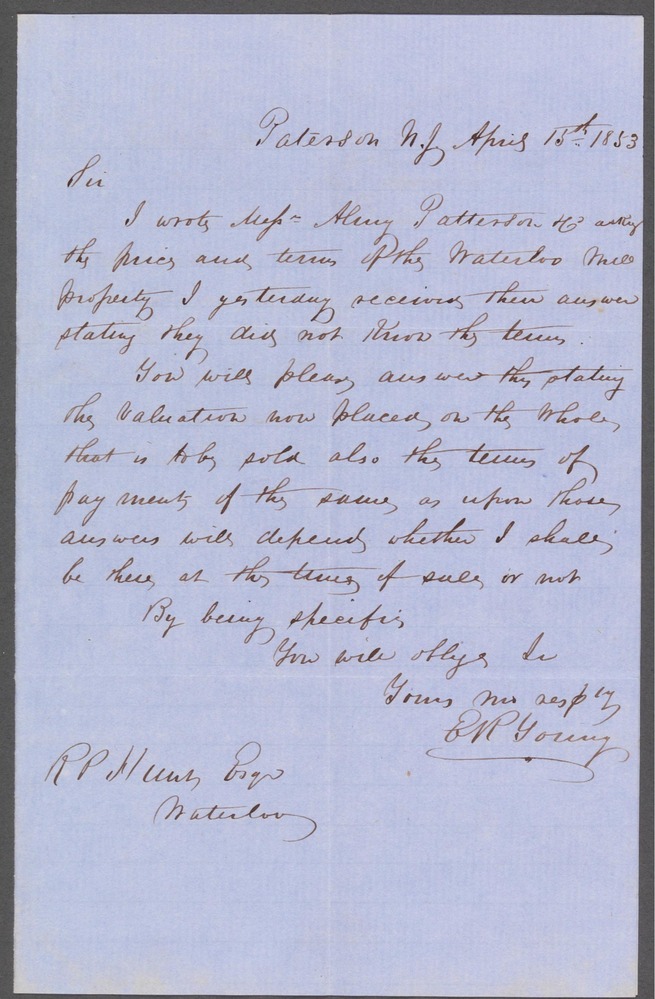 Paterson N.J. April 15th 1853
Sir
I wrote Messrs Almy Patterson &c asking
the price and terms of the Waterloo Mill
property I yesterday received their answer
stating they did not know the terms.
You will please answer this stating
the valuation now placed on the whole
that is to be sold also the terms of
payment of the same, as upon those
answers will depend whether I shall
be there at the time of sale or not
By being specific
You will oblige
Yours resply
E R Young
R P Hunt Esqr
Waterloo